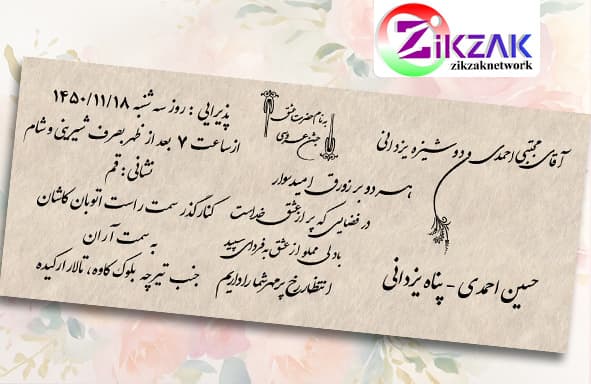 ZiKZAK
zikzaknetwork
به نام حضرت عشق
جشن عروسی
آقای مجتبی احمدی و دوشیزه یزدانی
هر دو بر زورق امید سوار
در فضایی که پر از عشق خداست
با دلی مملو از عشق به فردای سپید
انتظار رخ پر مهر شما را داریم
حسین احمدی - پناه یزدانی
پذیرایی : روز سه شنبه ۱۴۵۰/۱۱/۱۸
از ساعت ۷ بعد از ظهر بصرف شیرینی و شام
نشانی: قم
کنار گذر سمت راست اتوبان کاشان
به سمت آران
جنب تیرچه بلوک کاوه ، تالار ارکیده